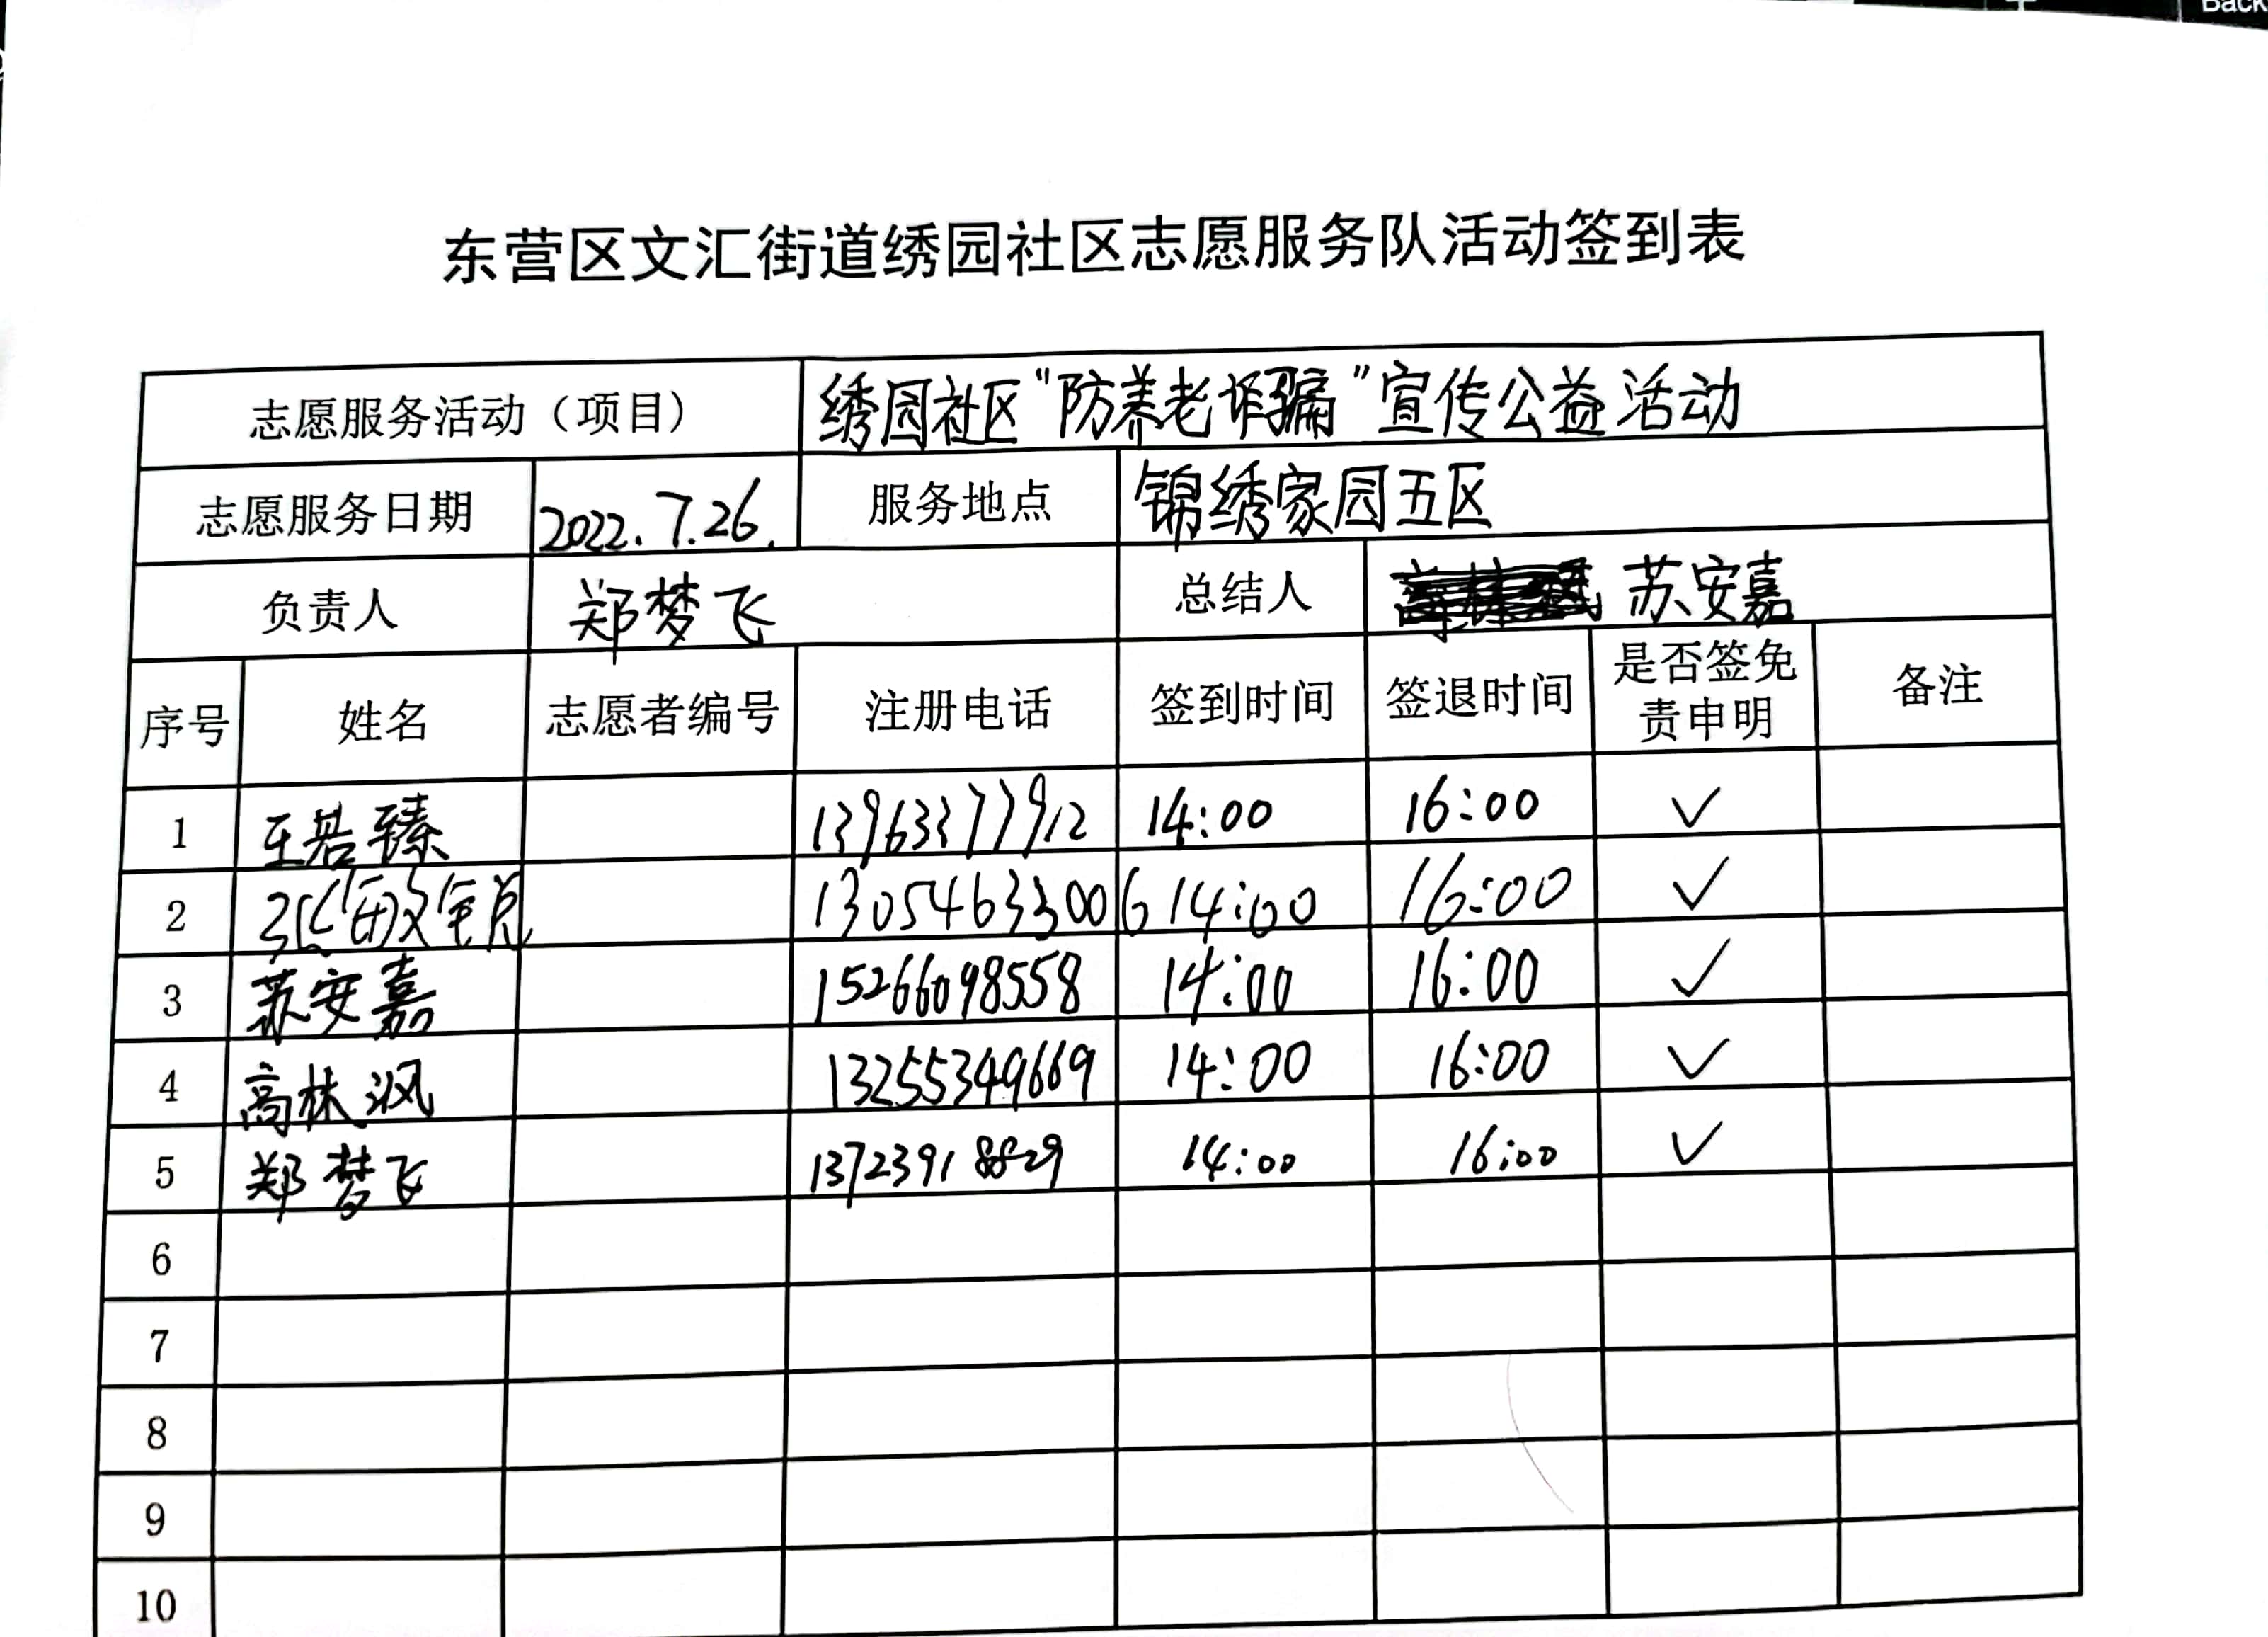 Back
东营区文汇街道绣园社区志愿服务队活动签到表
志愿服务活动（项目） 绣园社区“防养老诈骗”宣传公益活动
志愿服务日期 2022.7.26. 服务地点 锦绣家园五区
负责人 郑梦飞 总结人 苏安嘉
序号 姓名 志愿者编号 注册电话 签到时间 签退时间 是否签免责申明 备注
1 王若臻 13963377912 14:00 16:00 ✓
2 13054633006 14:00 16:00 ✓
3 苏安嘉 15266098558 14:00 16:00 ✓
4 高林沨 13255349669 14:00 16:00 ✓
5 郑梦飞 13723918829 14:00 16:00 ✓
6
7
8
9
10